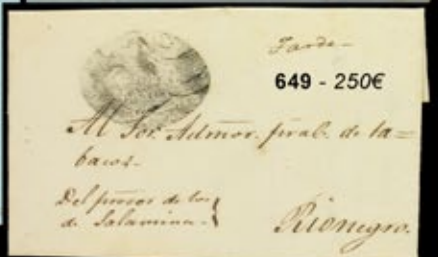 Tarde-
649 - 250€
Al Sor. Admor. pral. de ta=
bacos-
Del de los
de Salamina-
Rionegro.